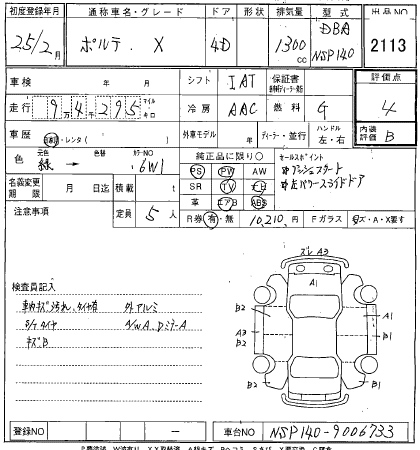 初度登録年月 通称車名・グレード ドア 形状 排気量 型式 出品NO
25/2月 ポルテ X 4D 1300cc DBA NSP140 2113
車検 年 月 シフト IAT 保証書 評価点
走行 9万4千295 マイル キロ 冷房 AAC 燃料 G 4
車歴 自家用・レンタ( ) 外車モデル 年 ディーラー・並行 ハンドル 左・右 内装評価 B
色 元色 緑 → 色替 カラーNO 6W1 純正品に限り○ セールスポイント
PS PW AW プッシュスタート
名義変更期限 月 日迄 積載 t SR TV ナビ 左パワースライドドア
革 エアB ABS
注意事項 定員 5人 R券 有・無 10,210円 Fガラス キズ・A・X要す
ズレ A3
A1
検査員記入
車内キズ汚れ、タイヤ有 外アルミ
キズB
B2 A1
A3 B2 B1
B2 B1
登録NO — 車台NO NSP140-9006733